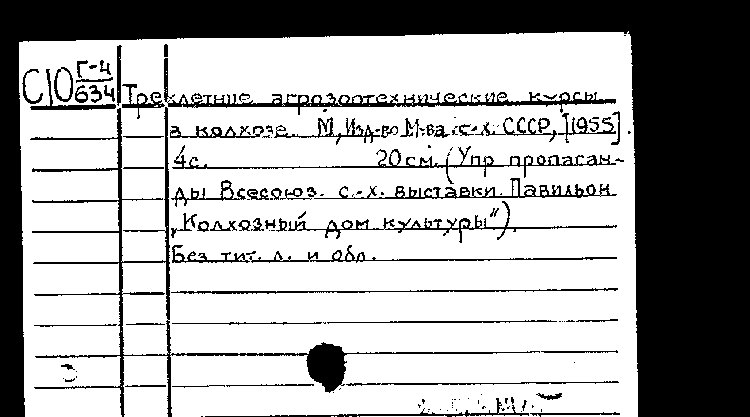 С10 Г-4
634 Трехлетние агрозоотехнические курсы
в колхозе. М, Изд-во М-ва с.-х. СССР, [1955].
4с. 20см. (Упр пропаган-
ды Всесоюз. с.-х. выставки. Павильон
„Колхозный дом культуры").
Без тит. л. и обл.